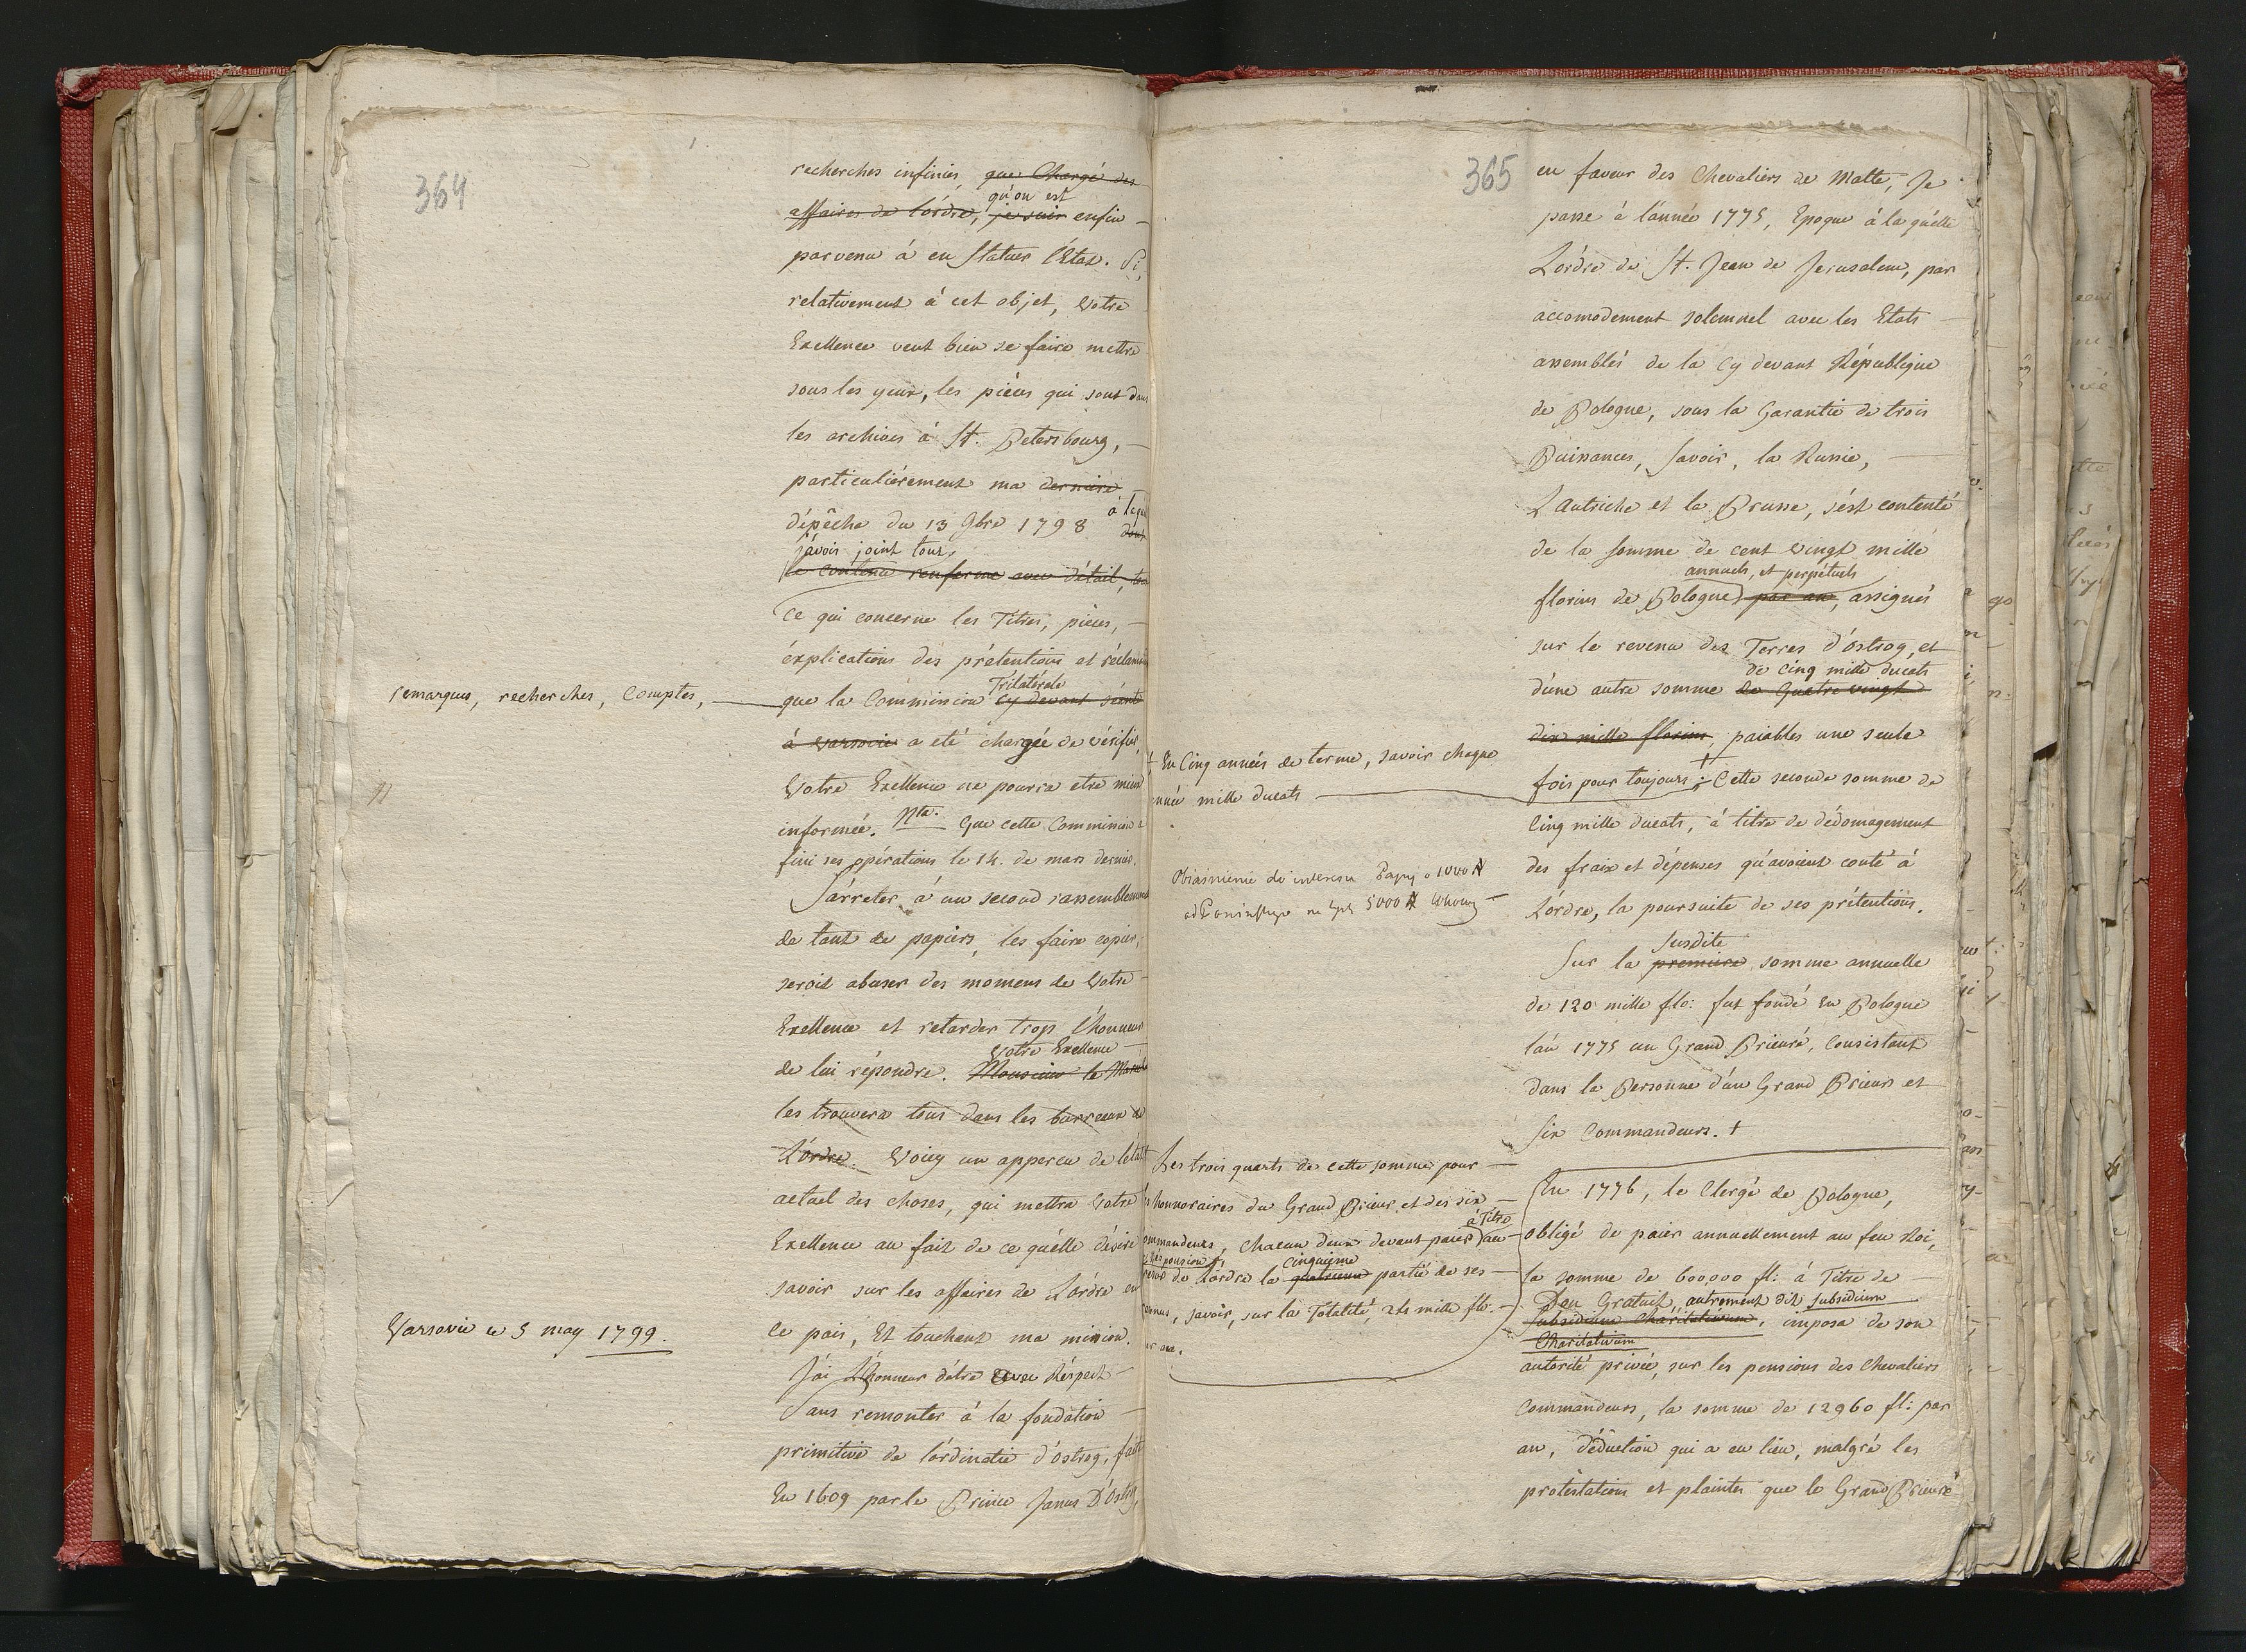 364
recherches infinies, que Chargé des
affaires de l'órdre, je suis qu'on est enfin
parvenu à en Statuer l'Etat. Si,
relativement à cet objet, Votre
Exellence veut bien se faire mettre
sous les yeux, les pièces qui sont dans
les archives à St. Petersbourg,
particulièrement ma dernière
dépêche du 13 9bre 1798 dont
j'avois joint tous,
le contenu renferme avec détail,
ce qui concerne les Titres, pièces,
remarques, recherches, Comptes,
éxplications des prétentions et
Trilatérale
que la Commission cy devant séante
à Varsovie a été chargée de vérifier,
Votre Exellence ne pourra etre mieux
informée. Nta. Que cette Commission a
fini ses opérations le 14. de mars dernier.
S'árreter à un second rassemblement
de tant de papiers, les faire copier,
seroit abuser des momens de Votre
Exellence et retarder trop l'honneur
Votre Exellence
de lui répondre. Monsieur le
les trouvera tous dans les bureaux de
L'órdre. Voicy un apperçu de l'état
actuel des choses, qui mettra Votre
Exellence au fait de ce qu'elle désire
savoir sur les affaires de L'órdre en
ce païs, Et touchant ma mission.
Varsovie ce 5 may 1799.
J'ái L'honneur d'étre avec Réspect
Sans remonter à la fondation
primitive de l'órdinatie d'óstrog, fait
En 1609 par le Prince Janus D'Ostrog,
365
en faveur des Chevaliers de Malte, Je
passe à l'ánnée 1775, Epoque à la quélle
L'órdre de St. Jean de Jerusalem, par
accomodement solemnel avec les Etats
assemblés de la Cy devant République
de Pologne, sous la Garantie de trois
Puissances, Savoir, la Russie,
L'Autriche et la Prusse, s'ést contenté
de la Somme de cent Vingt mille
annuels, et perpétuels
florins de Pologne par an, assignés
sur le revenu des Terres d'óstrog, et
de cinq mille ducats
d'úne autre somme de Quatre vingt
dix mille florins, païables une seule
fois pour toujours; + Cette seconde somme de
+ En Cinq années de terme, savoir chaque
année mille ducats
Cinq mille ducats, à titre de dédomagement
des fraix et dépenses qu'avoient couté à
L'órdre, la poursuite de ses prétentions.
Susdite
Sur la premiere somme annuelle
de 120 mille flo: fut fondé en Pologne
l'án 1775 un Grand Prieuré, Consistant
dans la Personne d'ún Grand Prieur et
Six Commandeurs. +
Les trois quarts de cette somme pour
honnoraires du Grand Prieur et des six
à Titre
Commandeurs, chacun d'eux devant païer au
cinquième
de L'órdre la quatrieme partie de ses
savoir, sur la Totalité, 24 mille flo.
par an.
En 1776, le Clergé de Pologne,
obligé de païer annuellement au feu Roi,
la somme de 600,000 fl: à Titre de
Don Gratuit, autrement dit Subsidium
Subsidium Charitativum, imposa de son
Charitativum
autorité privée, sur les pensions des Chevaliers
Commandeurs, la somme de 12960 fl: par
an, déduction qui a eu lieu, malgré les
protéstations et plaintes que le Grand Prieuré